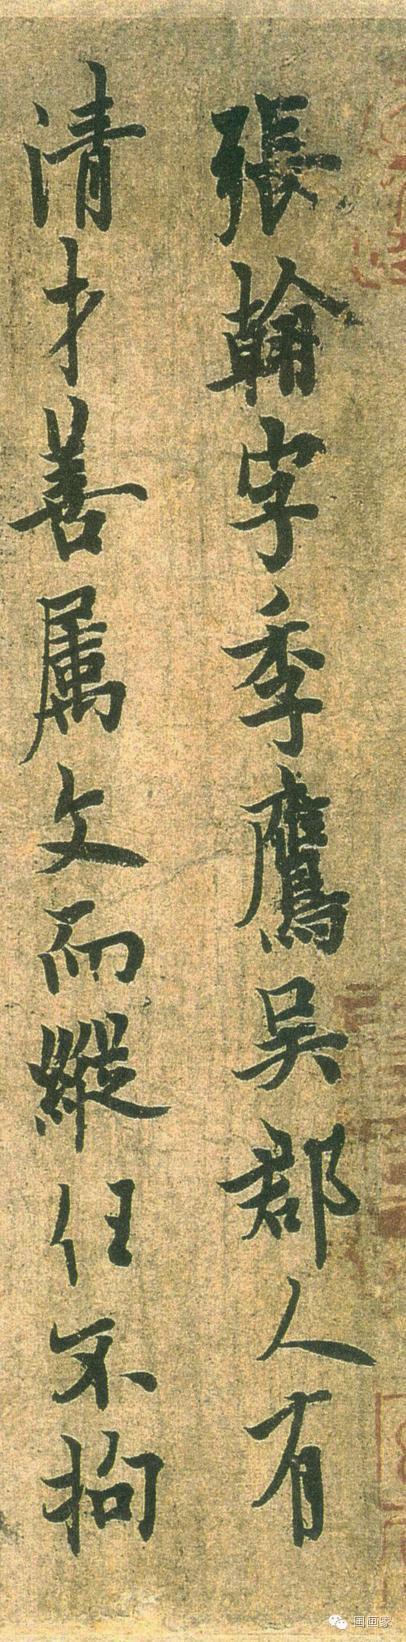 張翰字季鷹吳郡人有
清才善属文而縱任不拘
国画家